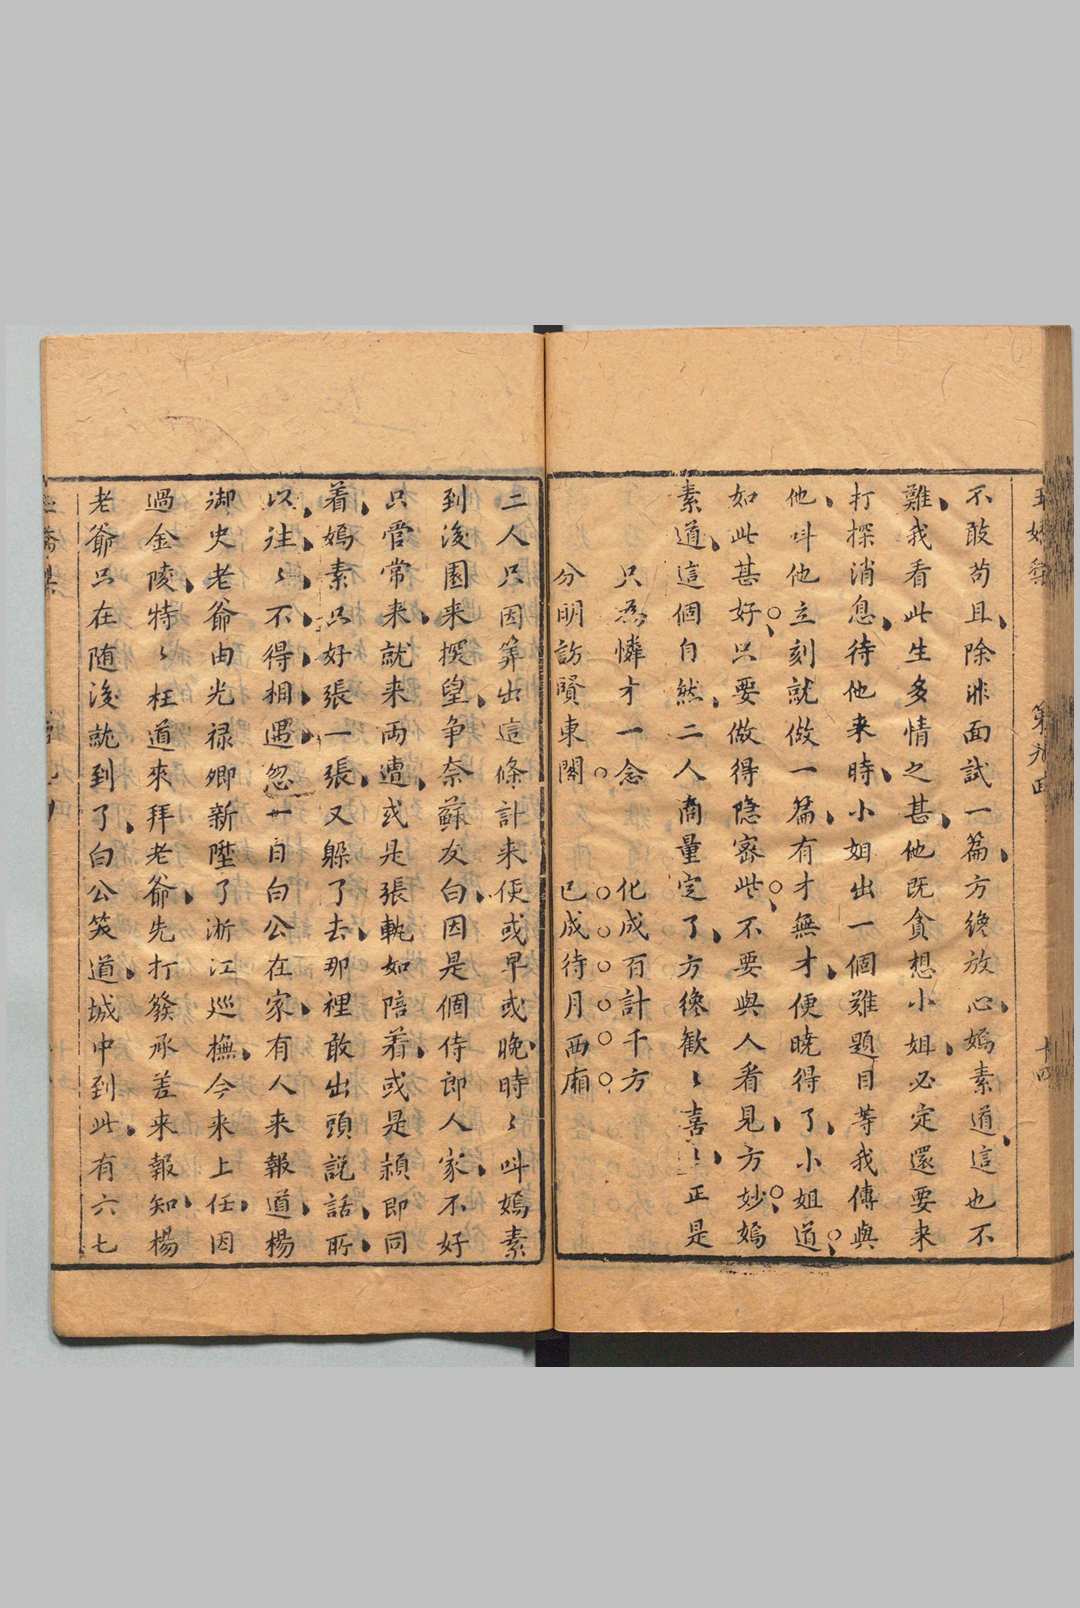 不敢苟且除非面試一篇方纔放心嫣素道這也不
難我看此生多情之甚他既貪想小姐必定還要来
打探消息待他来時小姐出一個難題目等我傳與
他呌他立刻就做一篇有才無才便曉得了小姐道
如此甚好只要做得隐宻些不要與人看見方妙嫣
素道這個自然二人商量定了方纔歡〻喜〻正是
只為憐才一念　化成百計千方
分明訪賢東閣　已成待月西廂
二人只因筭出這條計来便或早或晚時〻呌嫣素
到後園来探望争奈蘇友白因是個侍郎人家不好
只管常来就来兩遭或是張軌如陪着或是王穎即同
着嫣素只好張一張又躲了去那裡敢出頭説話所
以往〻不得相遇忽一日白公在家有人来報道楊
御史老爺由光禄卿新陞了浙江巡撫今来上任因
過金陵特〻枉道來拜老爺先打發承差来報知楊
老爺只在随後就到了白公笑道城中到此有六七